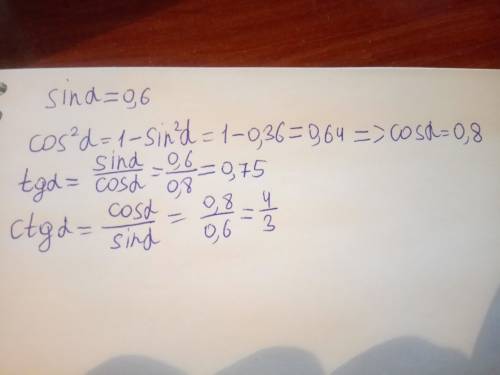 sinα=0,6
cos²α=1-sin²α=1-0,36=0,64 => cosα=0,8
tgα= sinα/cosα = 0,6/0,8 = 0,75
ctgα= cosα/sinα = 0,8/0,6 = 4/3